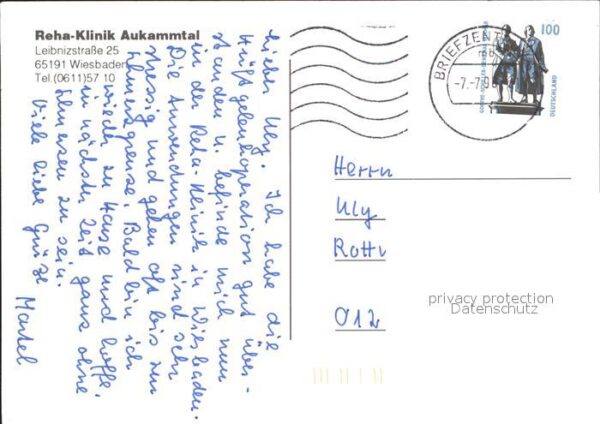 Reha-Klinik Aukammtal
Leibnizstraße 25
65191 Wiesbaden
Tel.(0611)57 10
Lieber Uly. Ich habe die
Hüftgelenkoperation gut über-
standen u. befinde mich nun
in der Reha-Klinik in Wiesbaden.
Die Anwendungen sind sehr
stressig und gehen oft bis zur
Schmerzgrenze. Bald bin ich
wieder zu Hause und hoffe,
in nächster Zeit ganz ohne
Schmerzen zu sein.
Viele liebe Grüße
BRIEFZENT
-7.-7.9
100
DEUTSCHLAND
Herrn
Uly
Rotti
012
privacy protection
Datenschutz